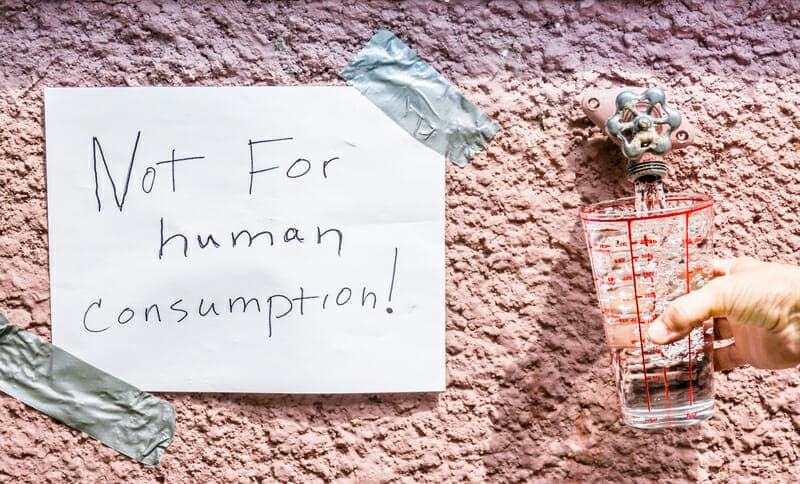 Not For
human
consumption!